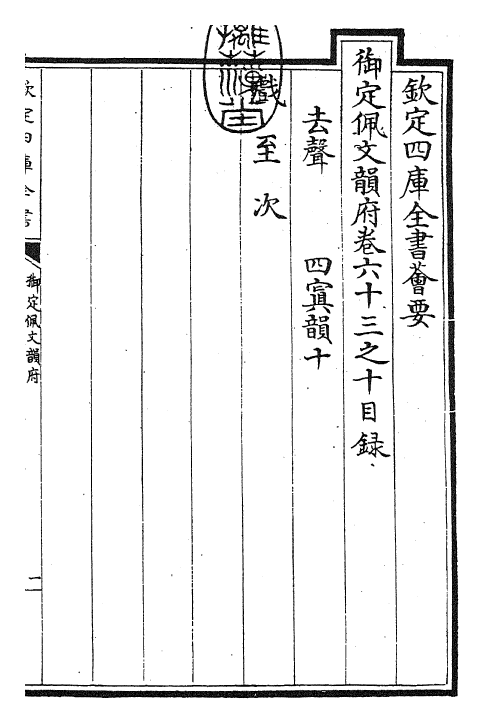 欽定四庫全書薈要
御定佩文韻府卷六十三之十目録
去聲　四寘韻十
至　次
欽定四庫全書
御定佩文韻府
二